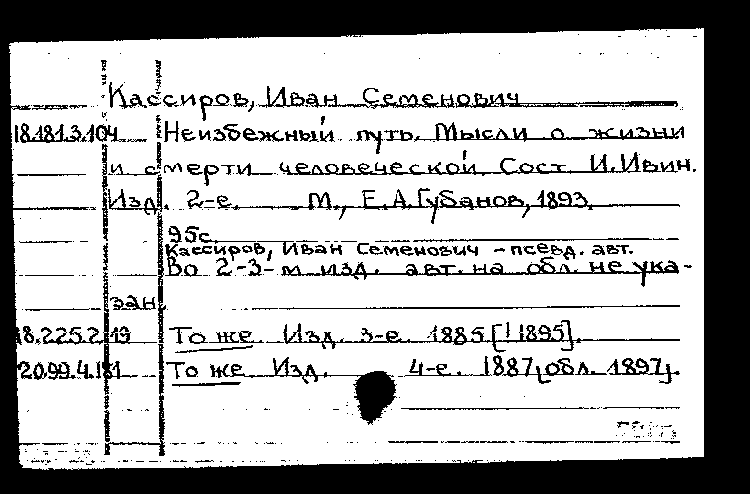 Кассиров, Иван Семенович
18.181.3.104 Неизбежный путь. Мысли о жизни
и смерти человеческой. Сост. И. Ивин.
Изд. 2-е. М., Е.А.Губанов, 1893.
95с.
Кассиров, Иван Семенович - псевд. авт.
Во 2-3-м изд. авт. на обл. не ука-
зан.
18.225.2.19 То же. Изд. 3-е. 1885 [! 1895].
20.99.4.181 То же. Изд. 4-е. 1887 [обл. 1897].